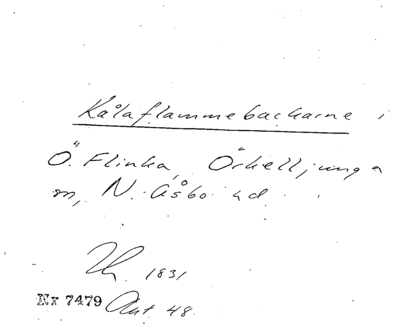 Kålaflammebackarne i
Ö. Flinka, Örkelljunga
sn, N. Åsbo hd.
1831
Nr 7479 Ant. 48.